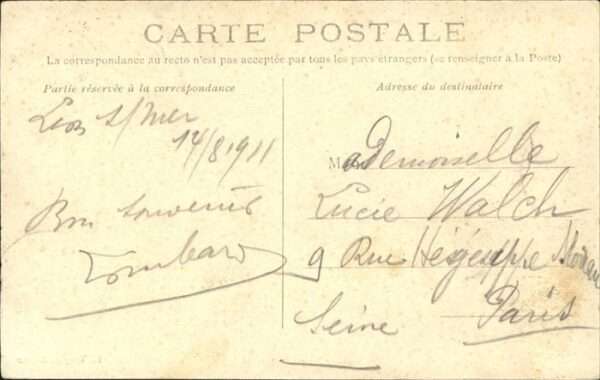 CARTE POSTALE
La correspondance au recto n'est pas acceptée par tous les pays étrangers (se renseigner à la Poste)
Partie réservée à la correspondance
s/mer
14/8 1911
Bon souvenir
Lombard
Adresse du destinataire
Mademoiselle
Lucie Walch
9 Rue Hégésippe Moreau
Paris
Seine